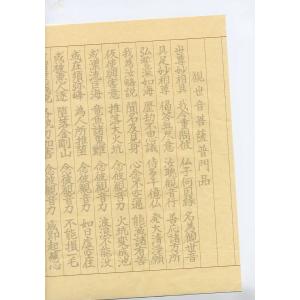 觀世音菩薩普門品
世尊妙相具 我今重問彼 佛子何因緣 名為觀世音
具足妙相尊 偈答無盡意 汝聽觀音行 善應諸方所
弘誓深如海 歷劫不思議 侍多千億佛 發大清淨願
我為汝略說 聞名及見身 心念不空過 能滅諸有苦
假使興害意 推落大火坑 念彼觀音力 火坑變成池
或漂流巨海 龍魚諸鬼難 念彼觀音力 波浪不能沒
或在須彌峰 為人所推墮 念彼觀音力 如日虛空住
或被惡人逐 墮落金剛山 念彼觀音力 不能損一毛
各執刀加害 念彼觀音力 咸即起慈心